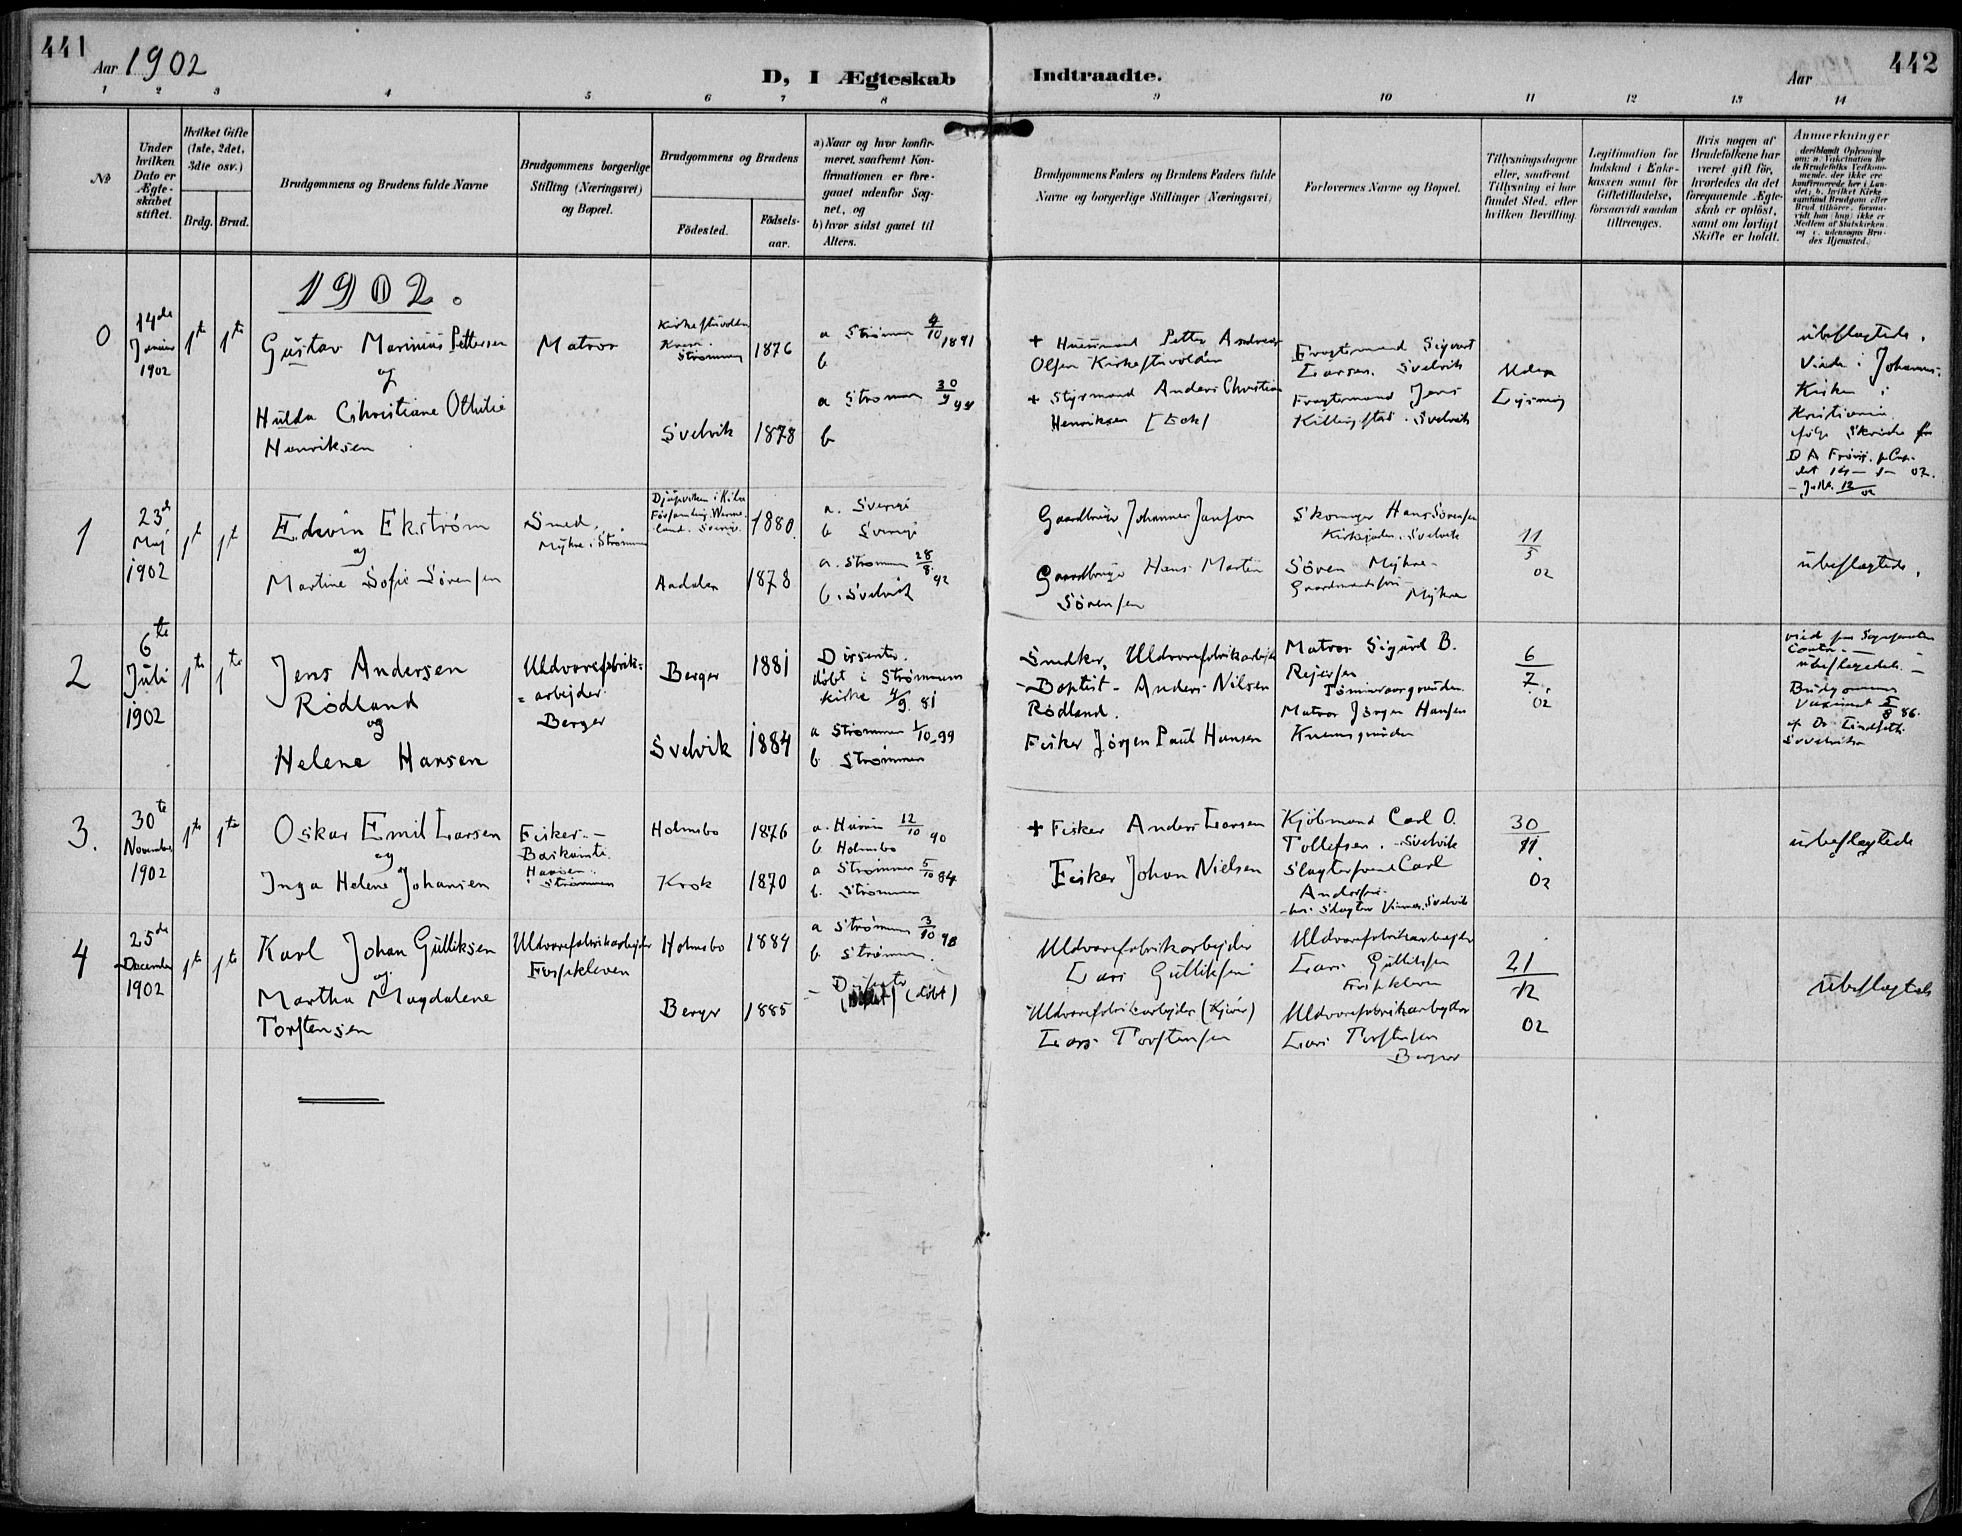 441
Aar 1902
D, I Ægteskab
Indtraadte.
Aar
442
1 2 3 4 5 6 7 8 9 10 11 12 13 14
No
Under hvilken Dato er Ægte-skabet stiftet.
Hvilket Gifte (1ste, 2det, 3die osv.)
Brdg. Brud.
Brudgommens og Brudens fulde Navne
Brudgommens borgerlige Stilling (Næringsvei) og Bopæl.
Brudgommens og Brudens
Födested.
Födsels-aar.
a) Naar og hvor konfir-
meret, saafremt Kon-
firmationen er fore-
gaaet udenfor Sog-
net, og
b) hvor sidst gaaet til
Alters.
Brudgommens Faders og Brudens Faders fulde
Navne og borgerlige Stillinger (Næringsvei)
Forlovernes Navne og Bopæl.
Tillysningsdagene
eller, saafremt
Tillysning ei har
fundet Sted, efter
hvilken Bevilling.
Legitimation for
Indskud i Enke-
kassen samt for
Giftetilladelse,
forsaavidt saadan
tiltrænges.
Hvis nogen af
Brudefolkene har
været gift för,
hvorledes da det
foregaaende Ægte-
skab er oplöst,
samt om lovligt
Skifte er holdt.
Anmerkninger
1902.
0
14de
Januar
1902
1te 1te
Gustav Marinius Pettersen
og
Hulda Christiane Othilie
Henriksen
Matros
Strømmen
1876
Svelvik 1878
a Strømmen 4/10 1891
b
a Strømmen 30/9
b
+ Husmand Petter Andreas
Olsen
+ Styrmand Anders Christian
Henriksen
Fragtemand Sigvart
Larsen. Svelvik
Fragtemand Jens
Killingstad. Svelvik
Uden
Lysning
ubeslægtede.
Viede i Johannes-
Kirken i
Kristiania
1
23de
Maj
1902
1te 1te
Edwin Ekstrøm
og
Martine Sofie Sörensen
Smed.
Mykre i Strømmen
1880.
Aadalen 1878
a. Sverige
b Sverige
a. Strømmen 28/8 92
b. Svelvik
Gaardbruger Johannes Janson
Gaardbruger Hans Martin
Sörensen
Skomager Hans Sörensen
Svelvik
Sören Mykre
Mykre
11/5 02
ubeslægtede.
2
6te
Juli
1902
1te 1te
Jens Andersen
Rødland
og
Helene Hansen
Uldvarefabrik-
arbejder.
Berger
Berger 1881
Svelvik 1884
Dissenter.
döbt i Strømmens
kirke 4/9. 81
a Strømmen 1/10-99
b Strømmen
Snedker, Uldvarefabrikarbejder
- Baptist - Anders Nilsen
Rødland.
Fisker Jörgen Paul Hansen
Matros Sigurd B.
Rejersen
Matros Jörgen Hansen
6/7. 02
ubeslægtede. -
Brudgommen
Vaccineret 5/8 86.
3.
30te
November
1902
1te 1te
Oskar Emil Larsen
og
Inga Helene Johansen
Fisker. -
Strømmen
Holmsbo 1876
Krok 1870
a. Hurum 12/10 90
b. Holmsbo
a Strømmen 5/10 84
b. Strømmen
+ Fisker Anders Larsen
Fisker Johan Nielsen
Kjöbmand Carl O.
Tollefsen. Svelvik
Slagtersvend Carl
Andersen.
Svelvik
30/11. 02
ubeslægtede
4
25de
December
1902
1te 1te
Karl Johan Gulliksen
og
Martha Magdalene
Torstensen
Uldvarefabrikarbejder
Fossekleven
Holmsbo 1884
Berger 1885
a Strømmen 3/10 98
b Strømmen.
- Dissenter
(döbt)
Uldvarefabrikarbejder
Lars Gulliksen
Uldvarefabrikarbejder
Lars Torstensen
Uldvarefabrikarbejder
Lars Gulliksen
Fossekleven
Uldvarefabrikarbejder
Lars Torstensen
Berger
21/12 02
ubeslægtede